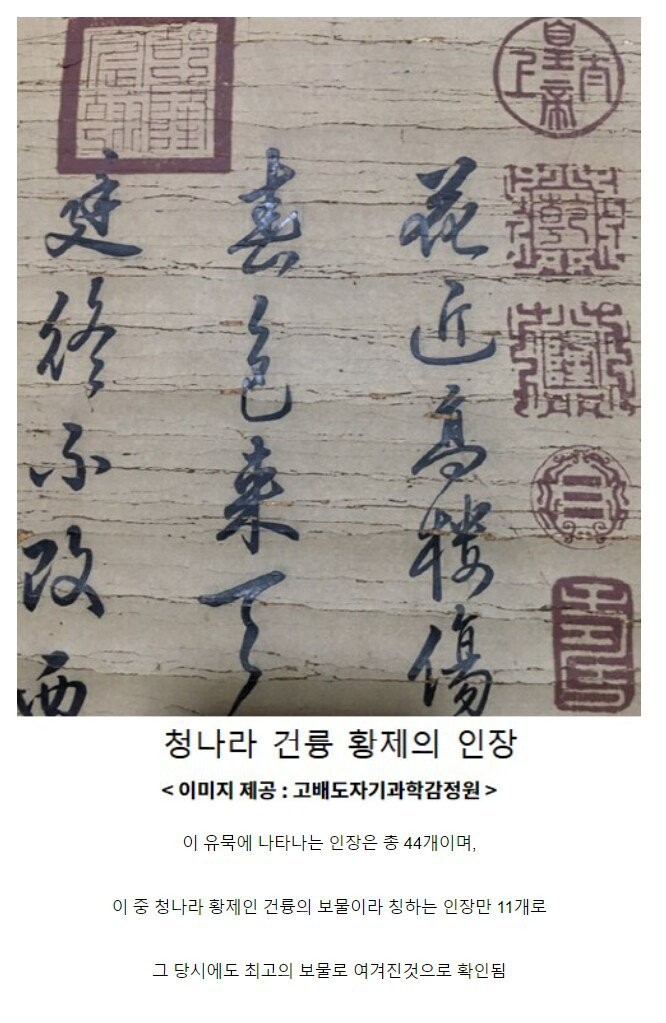 太上皇帝
乾
隆
花近高樓傷
春色來天
庭終不改西
청나라 건륭 황제의 인장
< 이미지 제공 : 고배도자기과학감정원 >
이 유묵에 나타나는 인장은 총 44개이며,
이 중 청나라 황제인 건륭의 보물이라 칭하는 인장만 11개로
그 당시에도 최고의 보물로 여겨진것으로 확인됨